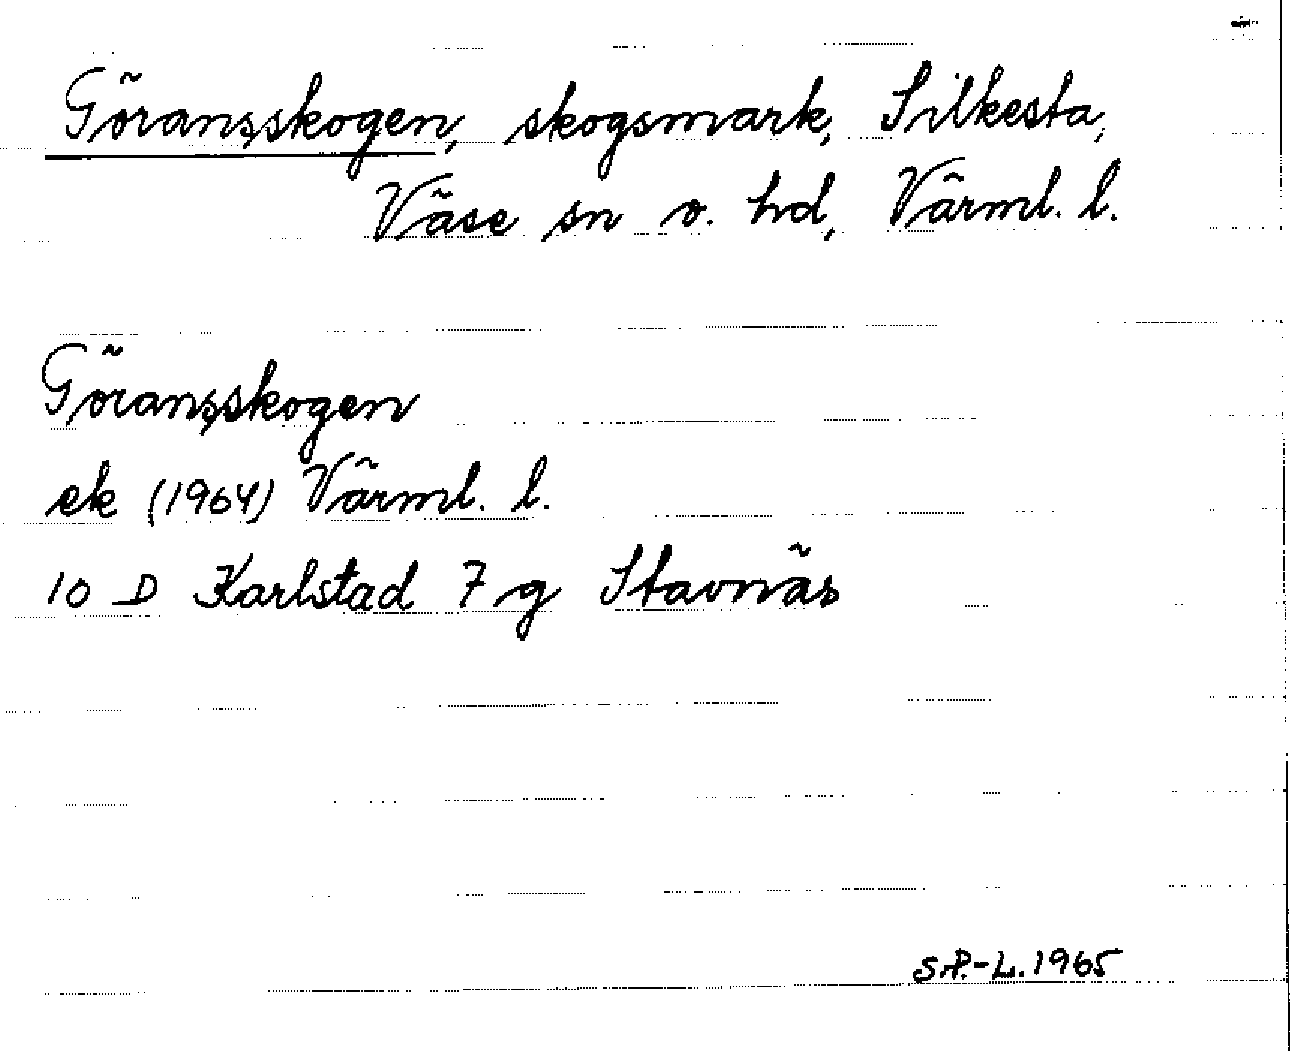 Göransskogen, skogsmark, Silkesta,
Väse sn o. hd, Värml. l.
Göransskogen
ek (1964) Värml. l.
10 D Karlstad 7 g Stavnäs
S.P.-L. 1965